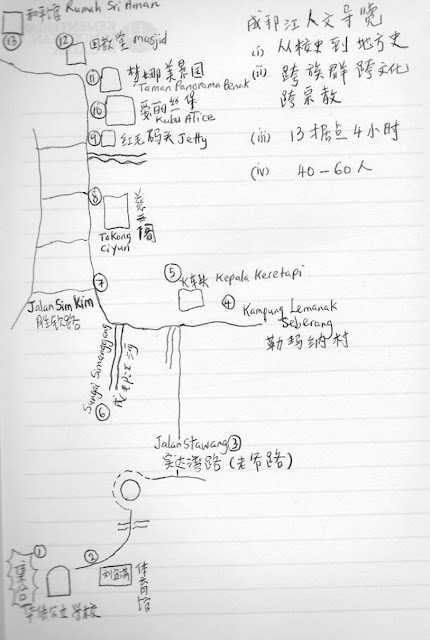 和平馆 Rumah Sri Aman
⑬
⑫
回教堂 masjid
⑪
梦娜美景园
Taman Panorama Benak
⑩
爱丽丝堡
Kubu Alice
⑨
红毛码头 Jetty
⑧
慈云阁
Tokong
Ciyun
⑦
⑤
K车头 Kepala Keretapi
④
Kampung Lemanak
Seberang
勒玛纳村
Jalan Sim Kim
胜钦路
Sungai Simanggang
成邦江河
⑥
Jalan Stawang ③
实达湾路 (老爷路)
①
②
集合
刘宜湾
体育馆
华传公立学校
成邦江人文导览
(i) 从校史到地方史
(ii) 跨族群 跨文化
跨宗教
(iii) 13据点 4小时
(iv) 40-60人